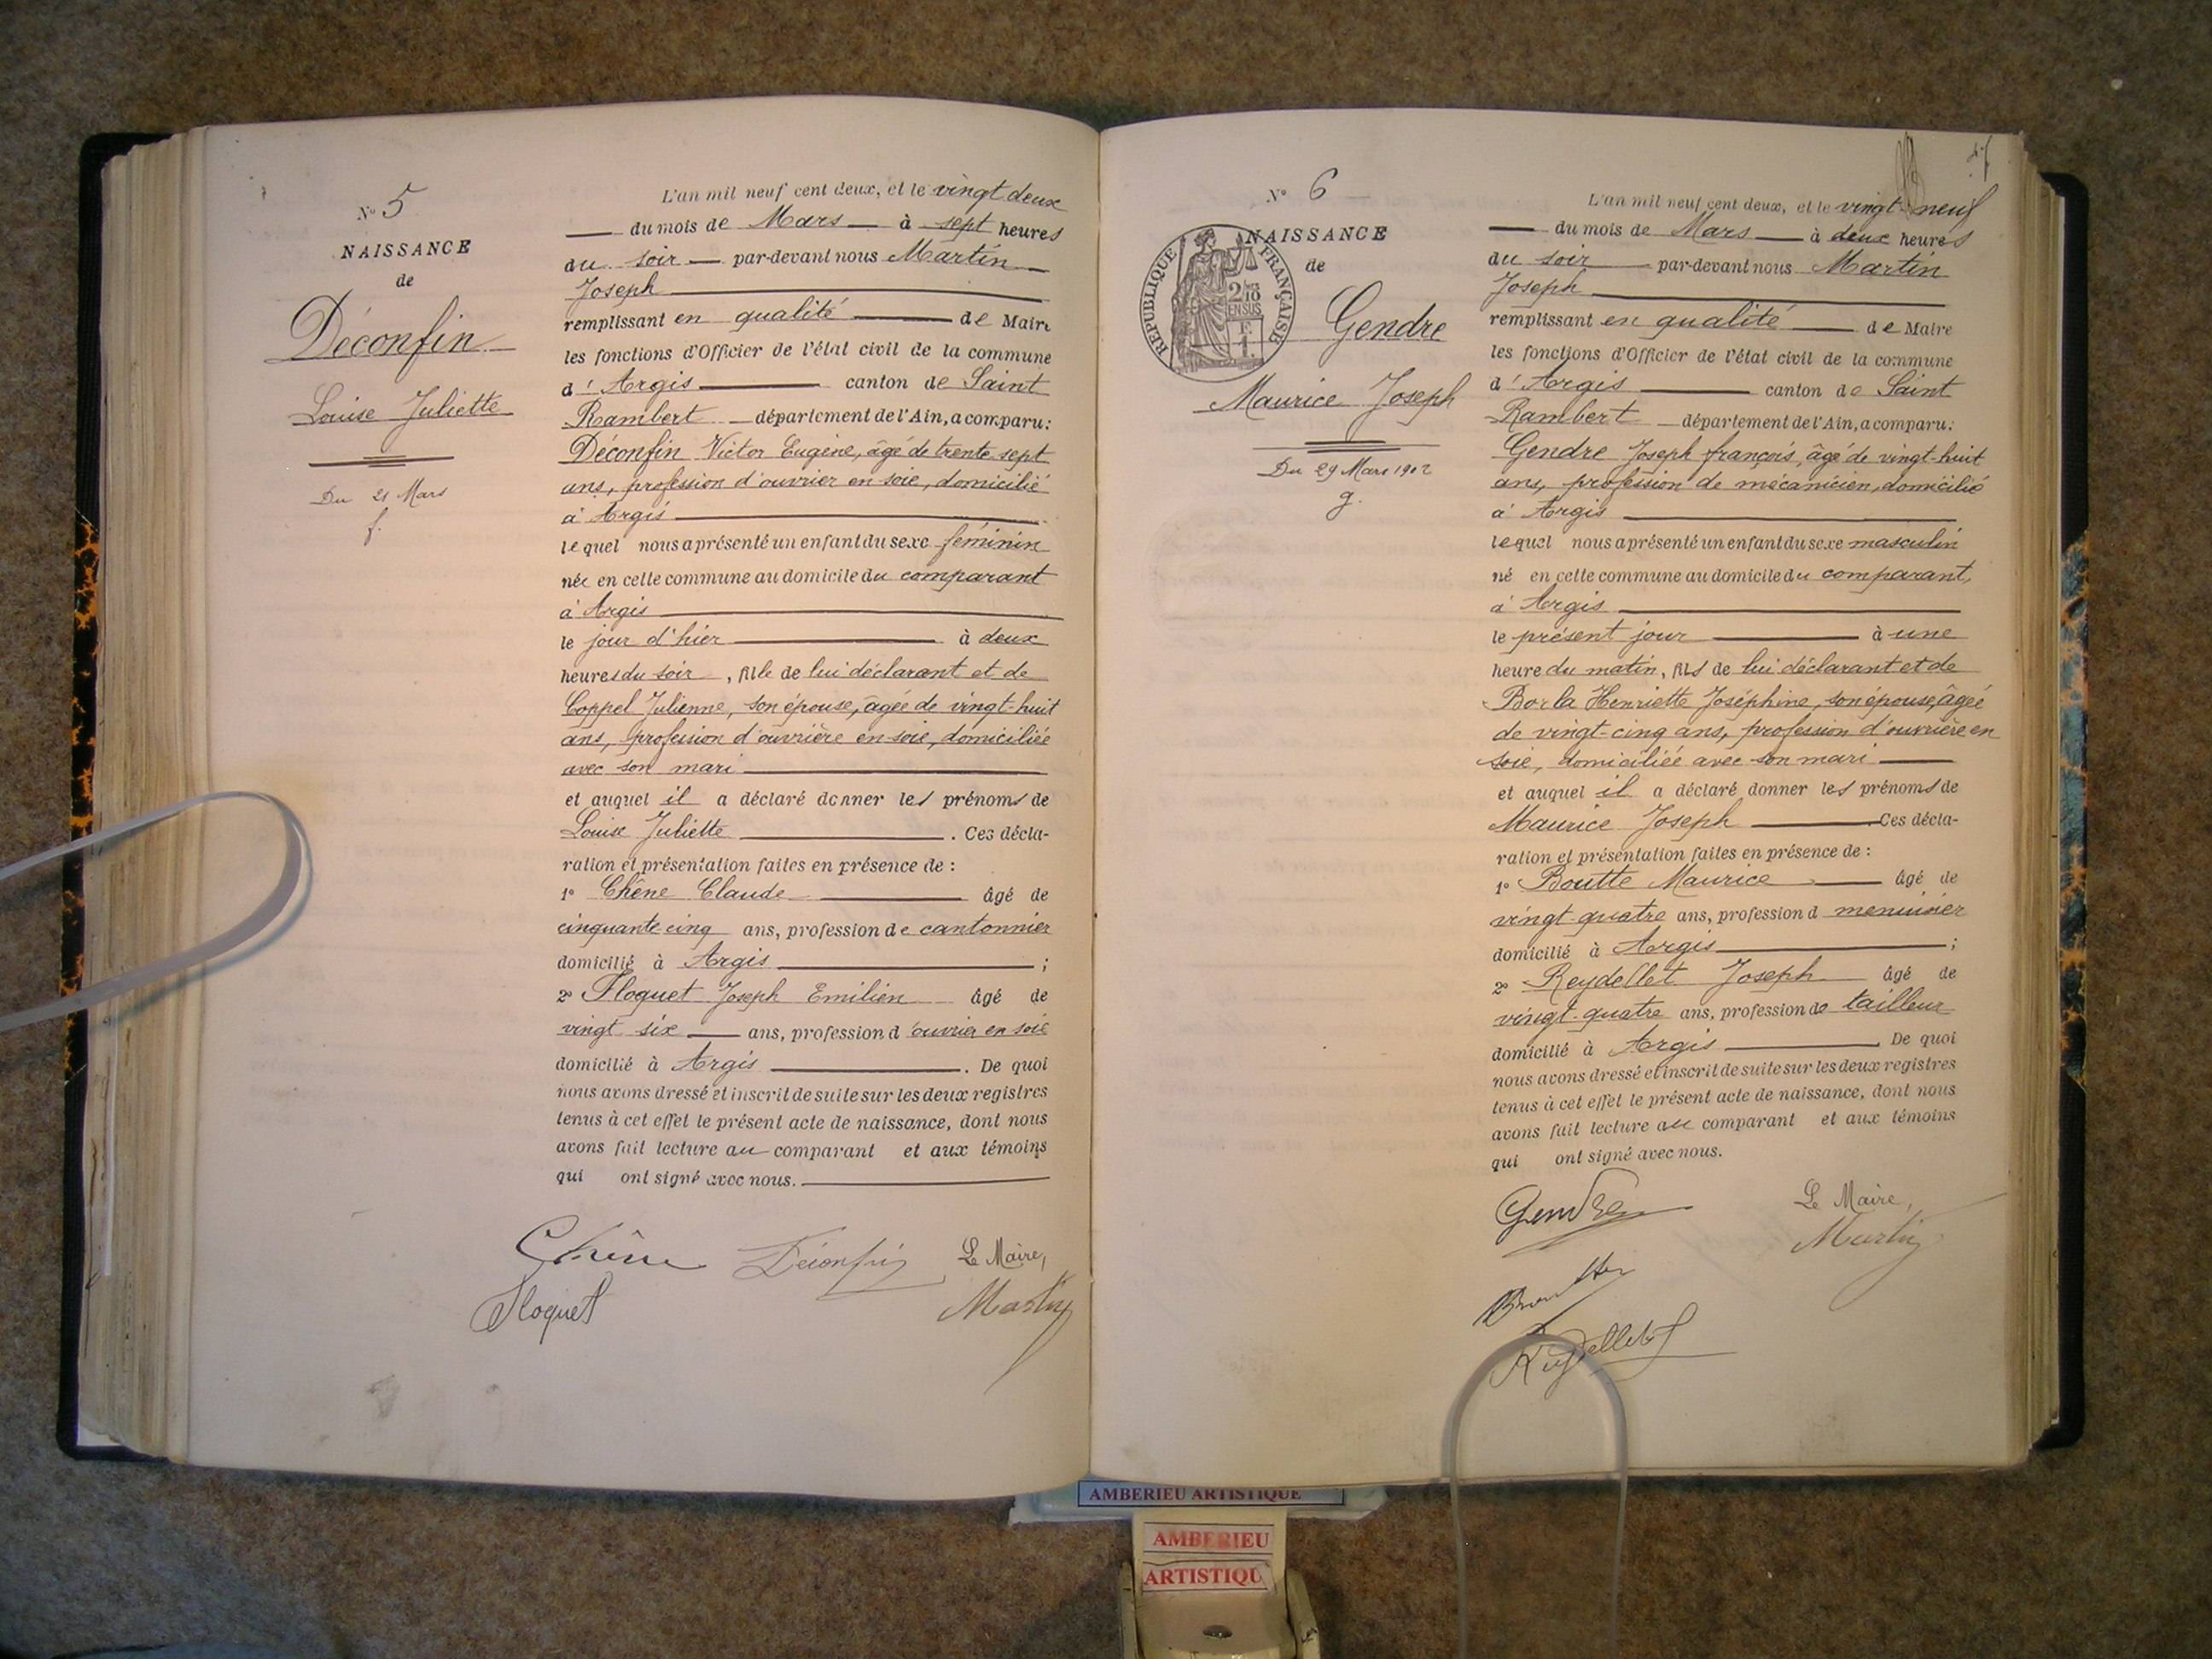 N° 5
NAISSANCE
de
Déconfin
Louise Juliette
Du 21 Mars
f.
L'an mil neuf cent deux, et le vingt deux
du mois de Mars à sept heures
du soir par-devant nous Martin
Joseph
remplissant en qualité de Maire
les fonctions d'Officier de l'état civil de la commune
d'Argis canton de Saint
Rambert département de l'Ain, a comparu:
Déconfin Victor Eugène, âgé de trente sept
ans, profession d'ouvrier en soie, domicilié
à Argis
lequel nous a présenté un enfant du sexe féminin
née en cette commune au domicile du comparant
à Argis
le jour d'hier à deux
heures du soir, fille de lui déclarant et de
Coppel Julienne, son épouse, âgée de vingt-huit
ans, profession d'ouvrière en soie, domiciliée
avec son mari
et auquel il a déclaré donner les prénoms de
Louise Juliette. Ces décla-
ration et présentation faites en présence de :
1° Chêne Claude âgé de
cinquante cinq ans, profession de cantonnier
domicilié à Argis ;
2° Floquet Joseph Emilien âgé de
vingt six ans, profession d'ouvrier en soie
domicilié à Argis. De quoi
nous avons dressé et inscrit de suite sur les deux registres
tenus à cet effet le présent acte de naissance, dont nous
avons fait lecture au comparant et aux témoins
qui ont signé avec nous.
Chêne Déconfin Le Maire,
Floquet Martin
N° 6
RÉPUBLIQUE FRANÇAISE
2/10
EN SUS
F.
1.
NAISSANCE
de
Gendre
Maurice Joseph
Du 29 Mars 1902
g.
L'an mil neuf cent deux, et le vingt-neuf
du mois de Mars à deux heures
du soir par-devant nous Martin
Joseph
remplissant en qualité de Maire
les fonctions d'Officier de l'état civil de la commune
d'Argis canton de Saint
Rambert département de l'Ain, a comparu:
Gendre Joseph françois, âgé de vingt-huit
ans, profession de mécanicien, domicilié
à Argis
lequel nous a présenté un enfant du sexe masculin
né en cette commune au domicile du comparant,
à Argis
le présent jour à une
heure du matin, fils de lui déclarant et de
Borla Henriette Joséphine, son épouse, âgée
de vingt-cinq ans, profession d'ouvrière en
soie, domiciliée avec son mari
et auquel il a déclaré donner les prénoms de
Maurice Joseph. Ces décla-
ration et présentation faites en présence de :
1° Boutte Maurice âgé de
vingt-quatre ans, profession d menuisier
domicilié à Argis ;
2° Reydellet Joseph âgé de
vingt-quatre ans, profession de tailleur
domicilié à Argis. De quoi
nous avons dressé et inscrit de suite sur les deux registres
tenus à cet effet le présent acte de naissance, dont nous
avons fait lecture au comparant et aux témoins
qui ont signé avec nous.
Gendre Le Maire,
Martin
Reydellet
AMBERIEU ARTISTIQUE
AMBERIEU
ARTISTIQU